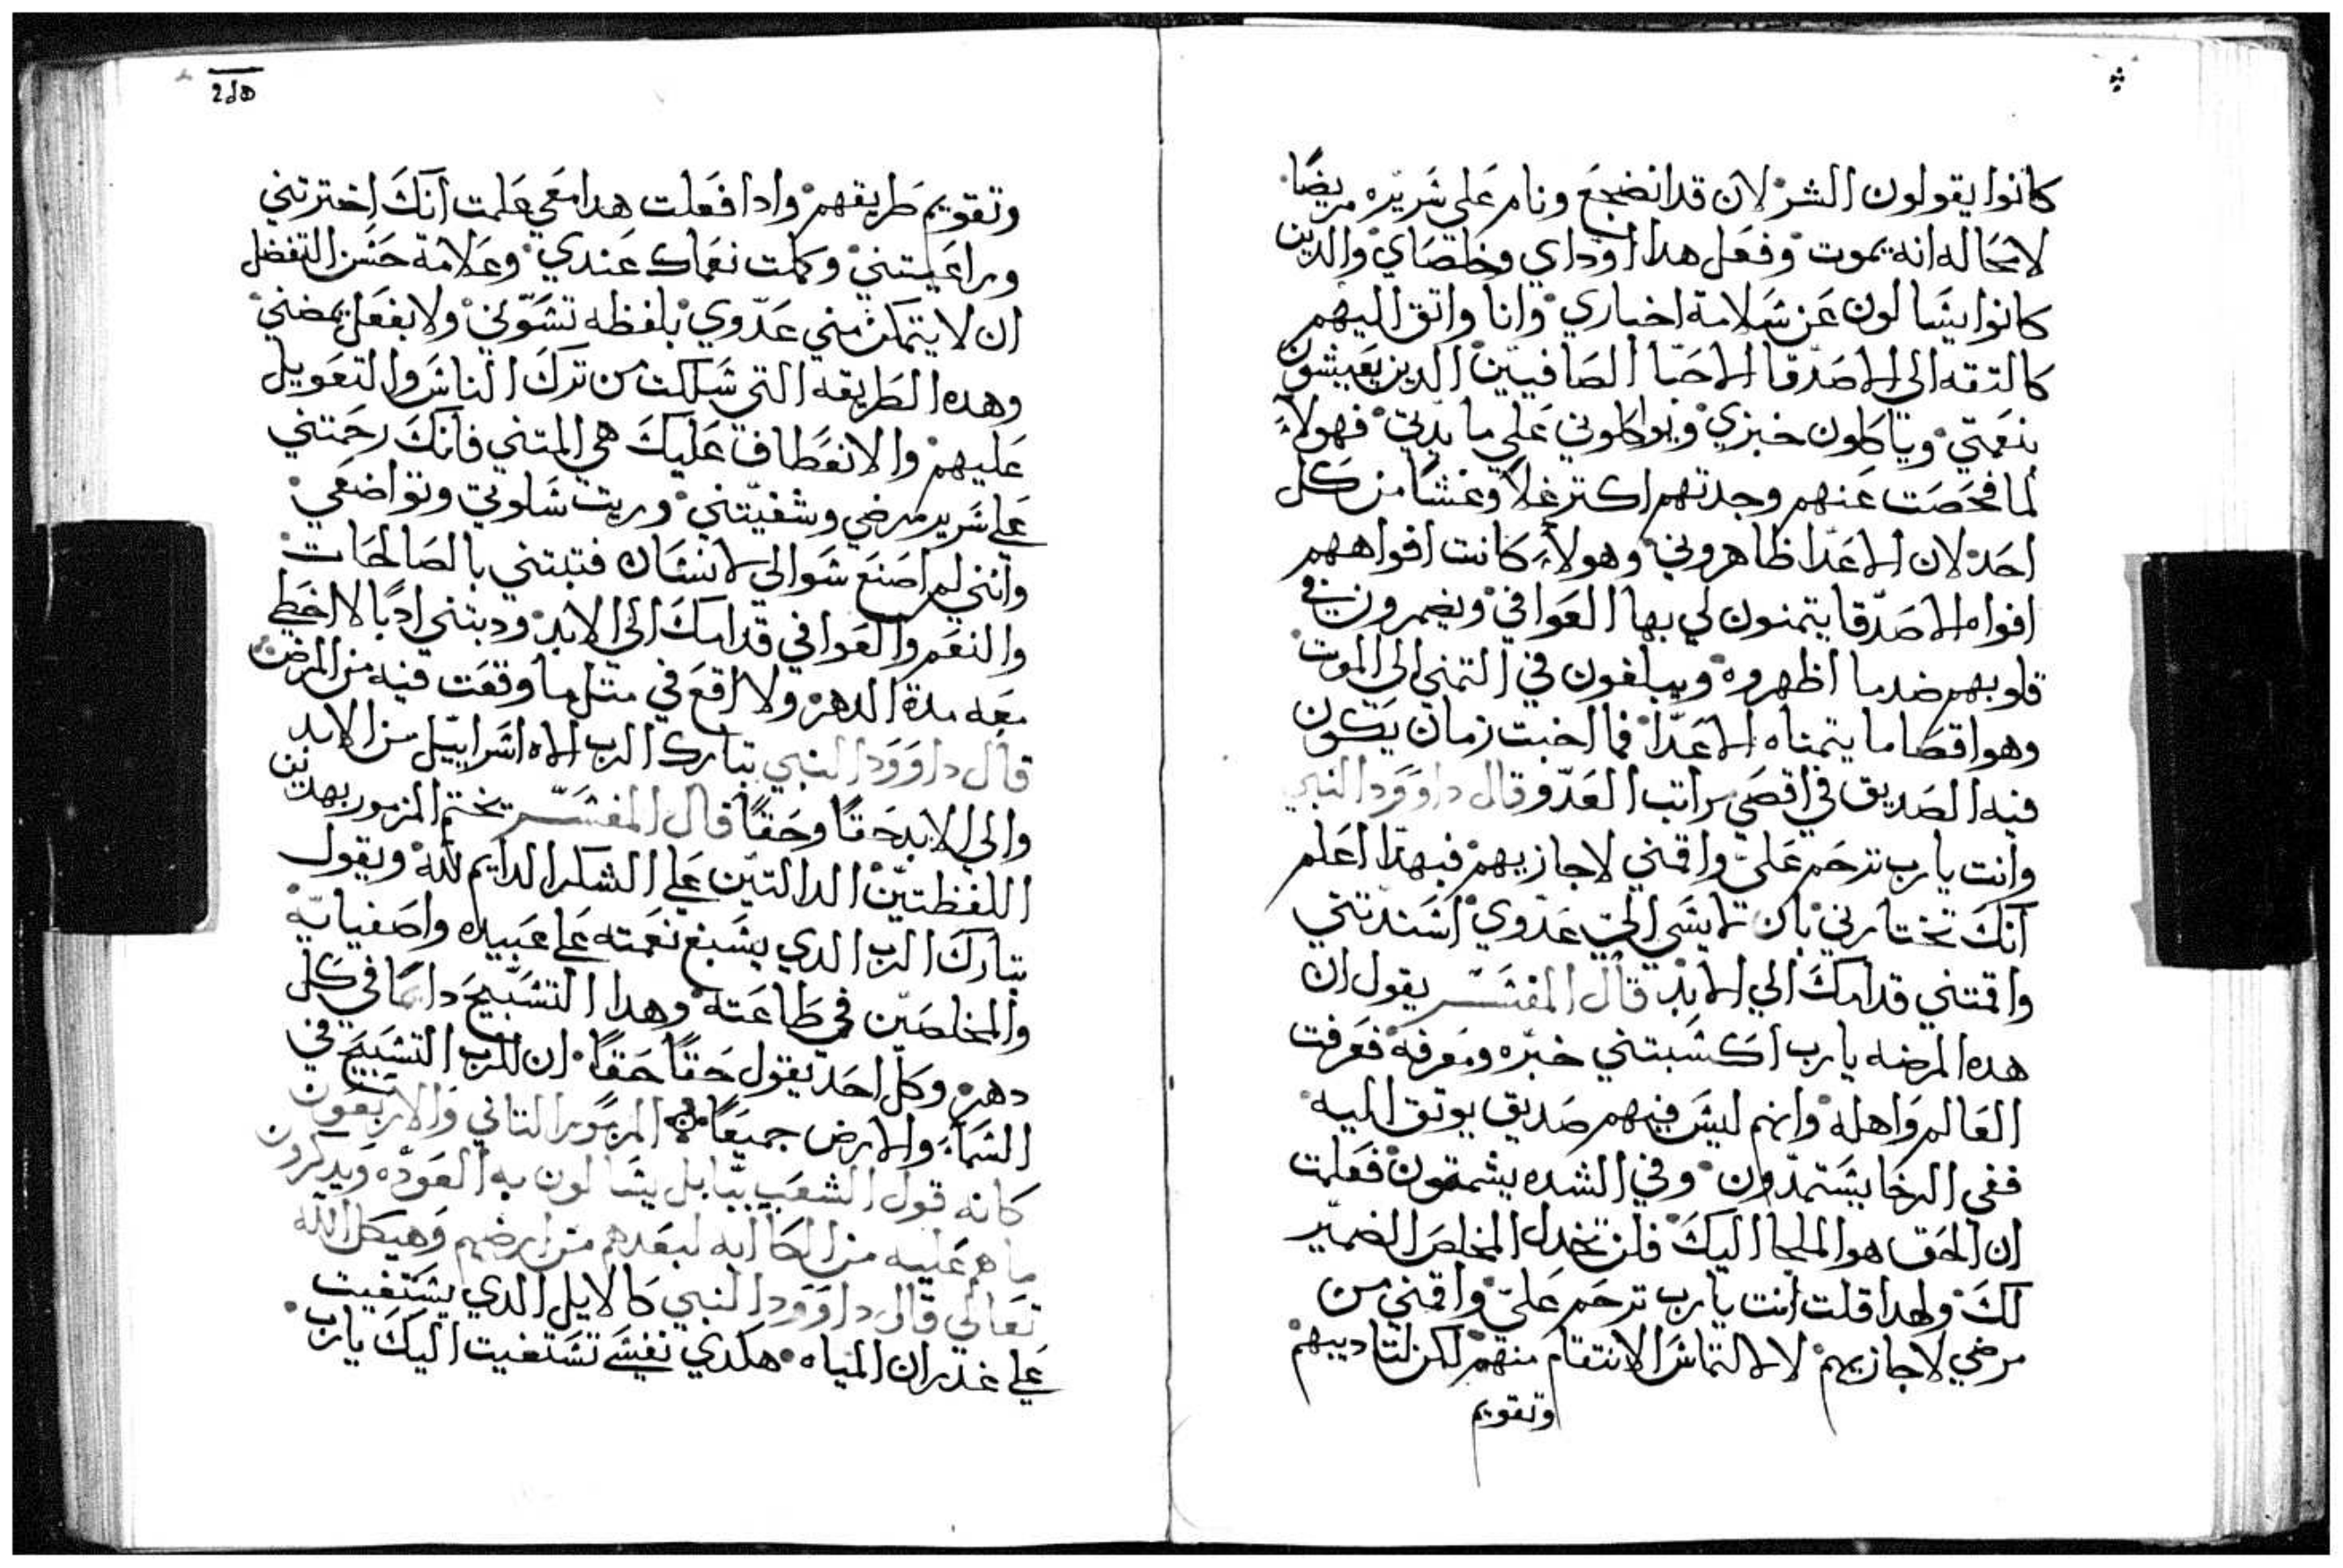 كانوا يقولون الشر لان قد انضجع ونام على شريره مريضًا
لا محاله انه يموت وفعل هدا اوداي وخلصاي والدين
كانوا يشالون عن شلامة اخباري وانا واتق اليهم
كالتقه الى الاصدقا الاحبا الصافيين الدين يعيشون
بنعمتي وياكلون خبزي ويواكلوني على مايدتي فهولاء
لما فحصت عنهم وجدتهم اكتر غلاً وغشًا من كل
احد لان الاعدا ظاهروني وهولاء كانت افواههم
افواه الاصدقا يتمنون لي بها العوافي ويضمرون في
قلوبهم ضد ما اظهروه ويبلغون في التمني الي الموت
وهو اقصا ما يتمناه الاعدا فما اخبت زمان يكون
فيه الصديق في اقصى مراتب العدو قال داوود النبي
وانت يارب ترحم علىّ واقمني لاجازيهم فبهدا اعلم
آنك تختارني بان لا يشى اليّ عدوي اشندتني
واقمتني قدامك الي الابد قال المفشر يقول ان
هده المرضه يارب اكشبتني خبره ومعرفه فعرفت
العالم واهله وانهم ليش فيهم صديق يوتق اليه
ففي الرخا يشتمدون وفي الشده يشمتون فعلمت
ان الحق هو الملجا اليك فلن تخدل المخلص الضمير
لك ولهدا قلت انت يارب ترحم علىّ واقمني من
مرضي لاجازيهم لا لالتماش الانتقام منهم لكن لتاديبهم
وتقويم
وتقويم طريقهم وادا فعلت هدا معي علمت آنك اخترتني
وراعيتني وكملت نعماك عندي وعلامة حشن التفضل
ان لا يتمكن مني عدوي بلفظه تشوني ولا بفعل يمضني
وهده الطريقه التي شلكت من ترك الناش والتعويل
عليهم والانعطاف عليك هي المتني فانك رحمتني
على شرير مرضي وشفيتني وريت شلوتي وتواضعي
وانني لم اصنع شوا الى الانشان فتبتني بالصالحات
والنعم والعوافي قدامك الي الابد ودبتني ادبًا لا اخطي
معه مدة الدهر ولا اقع في متل ما وقعت فيه من المرض
قال داوود النبي تبارك الرب الاه اشراييل من الابد
والي الابد حقًا وحقًا قال المفشر يختم المزمور بهدتين
اللفظتين الدالتين على الشكر الدايم لله ويقول
تبارك الرب الدي يشبغ نعمته على عبيده واصفيايه
والمخلصين في طاعته وهدا التشبيح دايمًا في كل
دهر وكل احد يقول حقًا حقًا ان للرب التشبيح في
الشماء والارض جميعًا المزمور التاني والاربعون
كانه قول الشعب ببابل يشالون به العوده ويدكرون
ما هم عليه من الكاابه لبعدهم من ارضهم وهيكل الله
تعالي قال داوود النبي كالايل الدي يشتغيت
على غدران المياه هكدي نفشي تشتغيت اليك يارب